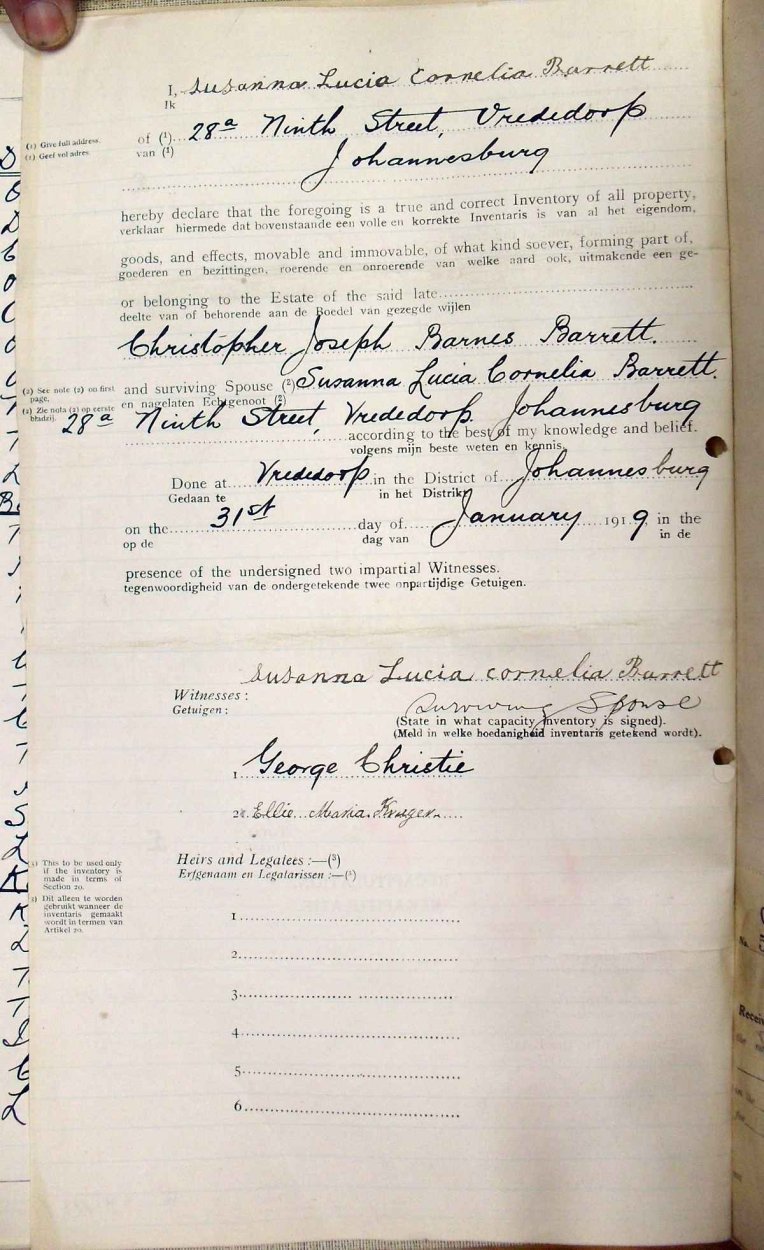 I, Susanna Lucia Cornelia Barrett
Ik
(1) Give full address.
(1) Geef vol adres.
of (1) 28a Ninth Street, Vrededorp
van (1)
Johannesburg
hereby declare that the foregoing is a true and correct Inventory of all property,
verklaar hiermede dat bovenstaande een volle en korrekte Inventaris is van al het eigendom,
goods, and effects, movable and immovable, of what kind soever, forming part of,
goederen en bezittingen, roerende en onroerende van welke aard ook, uitmakende een ge-
or belonging to the Estate of the said late
deelte van of behorende aan de Boedel van gezegde wijlen
Christopher Joseph Barnes Barrett.
(2) See note (2) on first
page.
(2) Zie nota (2) op eerste
bladzij.
and surviving Spouse (2) Susanna Lucia Cornelia Barrett.
en nagelaten Echtgenoot (2)
28a Ninth Street, Vrededorp. Johannesburg
according to the best of my knowledge and belief.
volgens mijn beste weten en kennis.
Done at Vrededorp in the District of Johannesburg
Gedaan te in het Distrikt
on the 31st day of January 1919, in the
op de dag van in de
presence of the undersigned two impartial Witnesses.
tegenwoordigheid van de ondergetekende twee onpartijdige Getuigen.
Susanna Lucia Cornelia Barrett
Witnesses:
Getuigen:
Surviving Spouse
(State in what capacity Inventory is signed).
(Meld in welke hoedanigheid inventaris getekend wordt).
1 George Christie
2. Ellie Maria Kruger.
(3) This to be used only
if the inventory is
made in terms of
Section 20.
(3) Dit alleen te worden
gebruikt wanneer de
inventaris gemaakt
wordt in termen van
Artikel 20.
Heirs and Legatees :—(3)
Erfgenaam en Legatarissen :—(3)
1
2
3
4
5
6